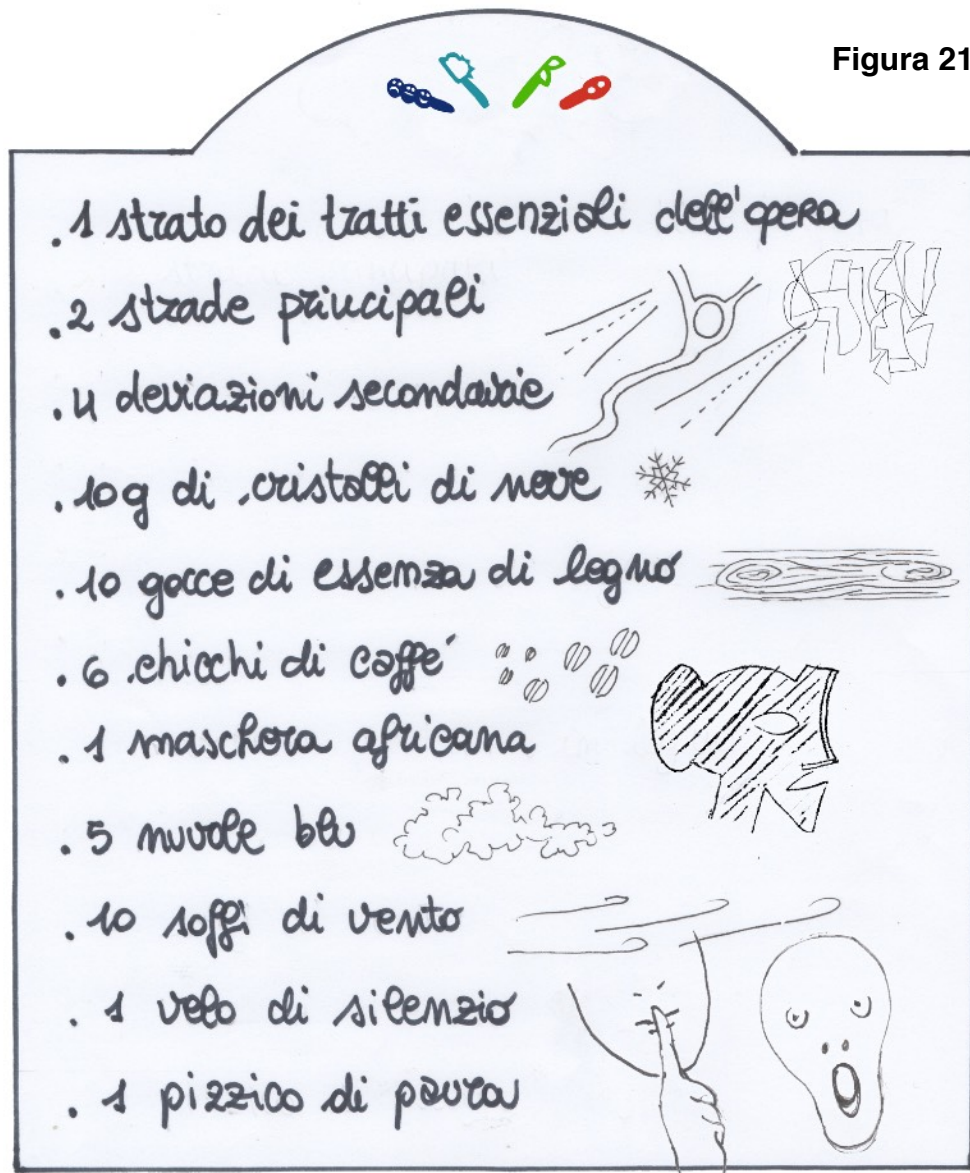 Figura 21
. 1 strato dei tratti essenziali dell'opera
. 2 strade principali
. 4 deviazioni secondarie
. 10g di cristalli di neve
. 10 gocce di essenza di legno
. 6 chicchi di caffè
. 1 maschera africana
. 5 nuvole blu
. 10 soffi di vento
. 1 velo di silenzio
. 1 pizzico di paura